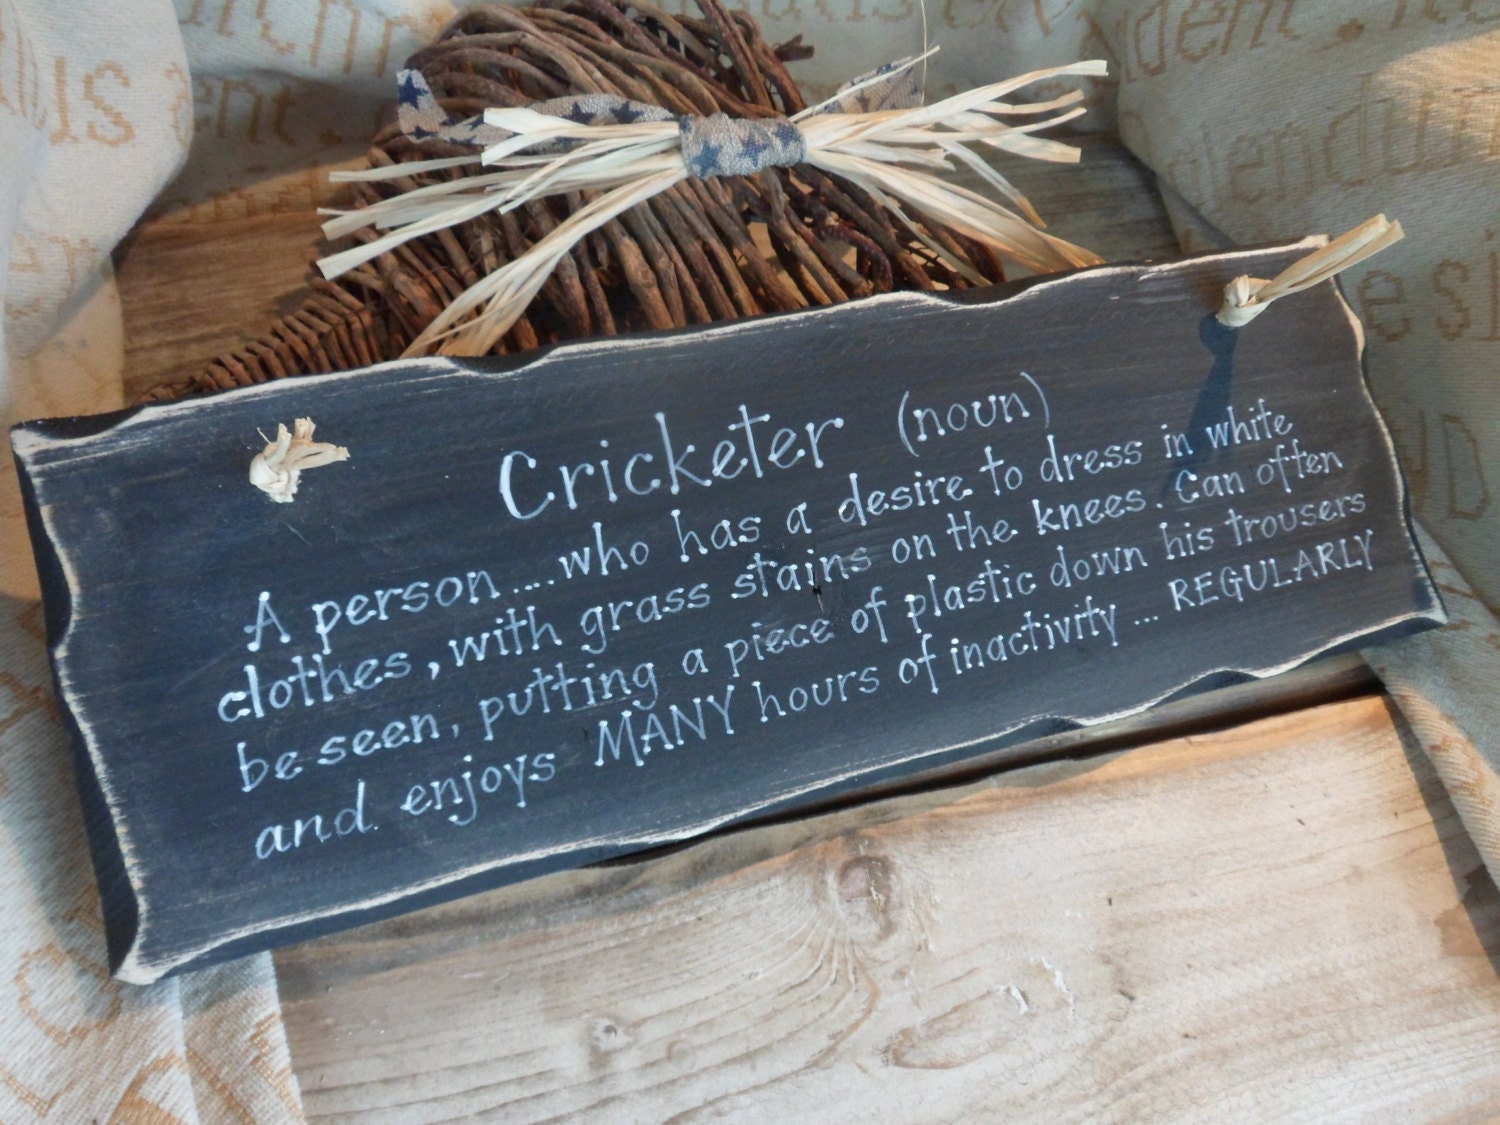 Cricketer (noun)
A person....who has a desire to dress in white
clothes, with grass stains on the knees. Can often
be seen, putting a piece of plastic down his trousers
and enjoys MANY hours of inactivity ... REGULARLY